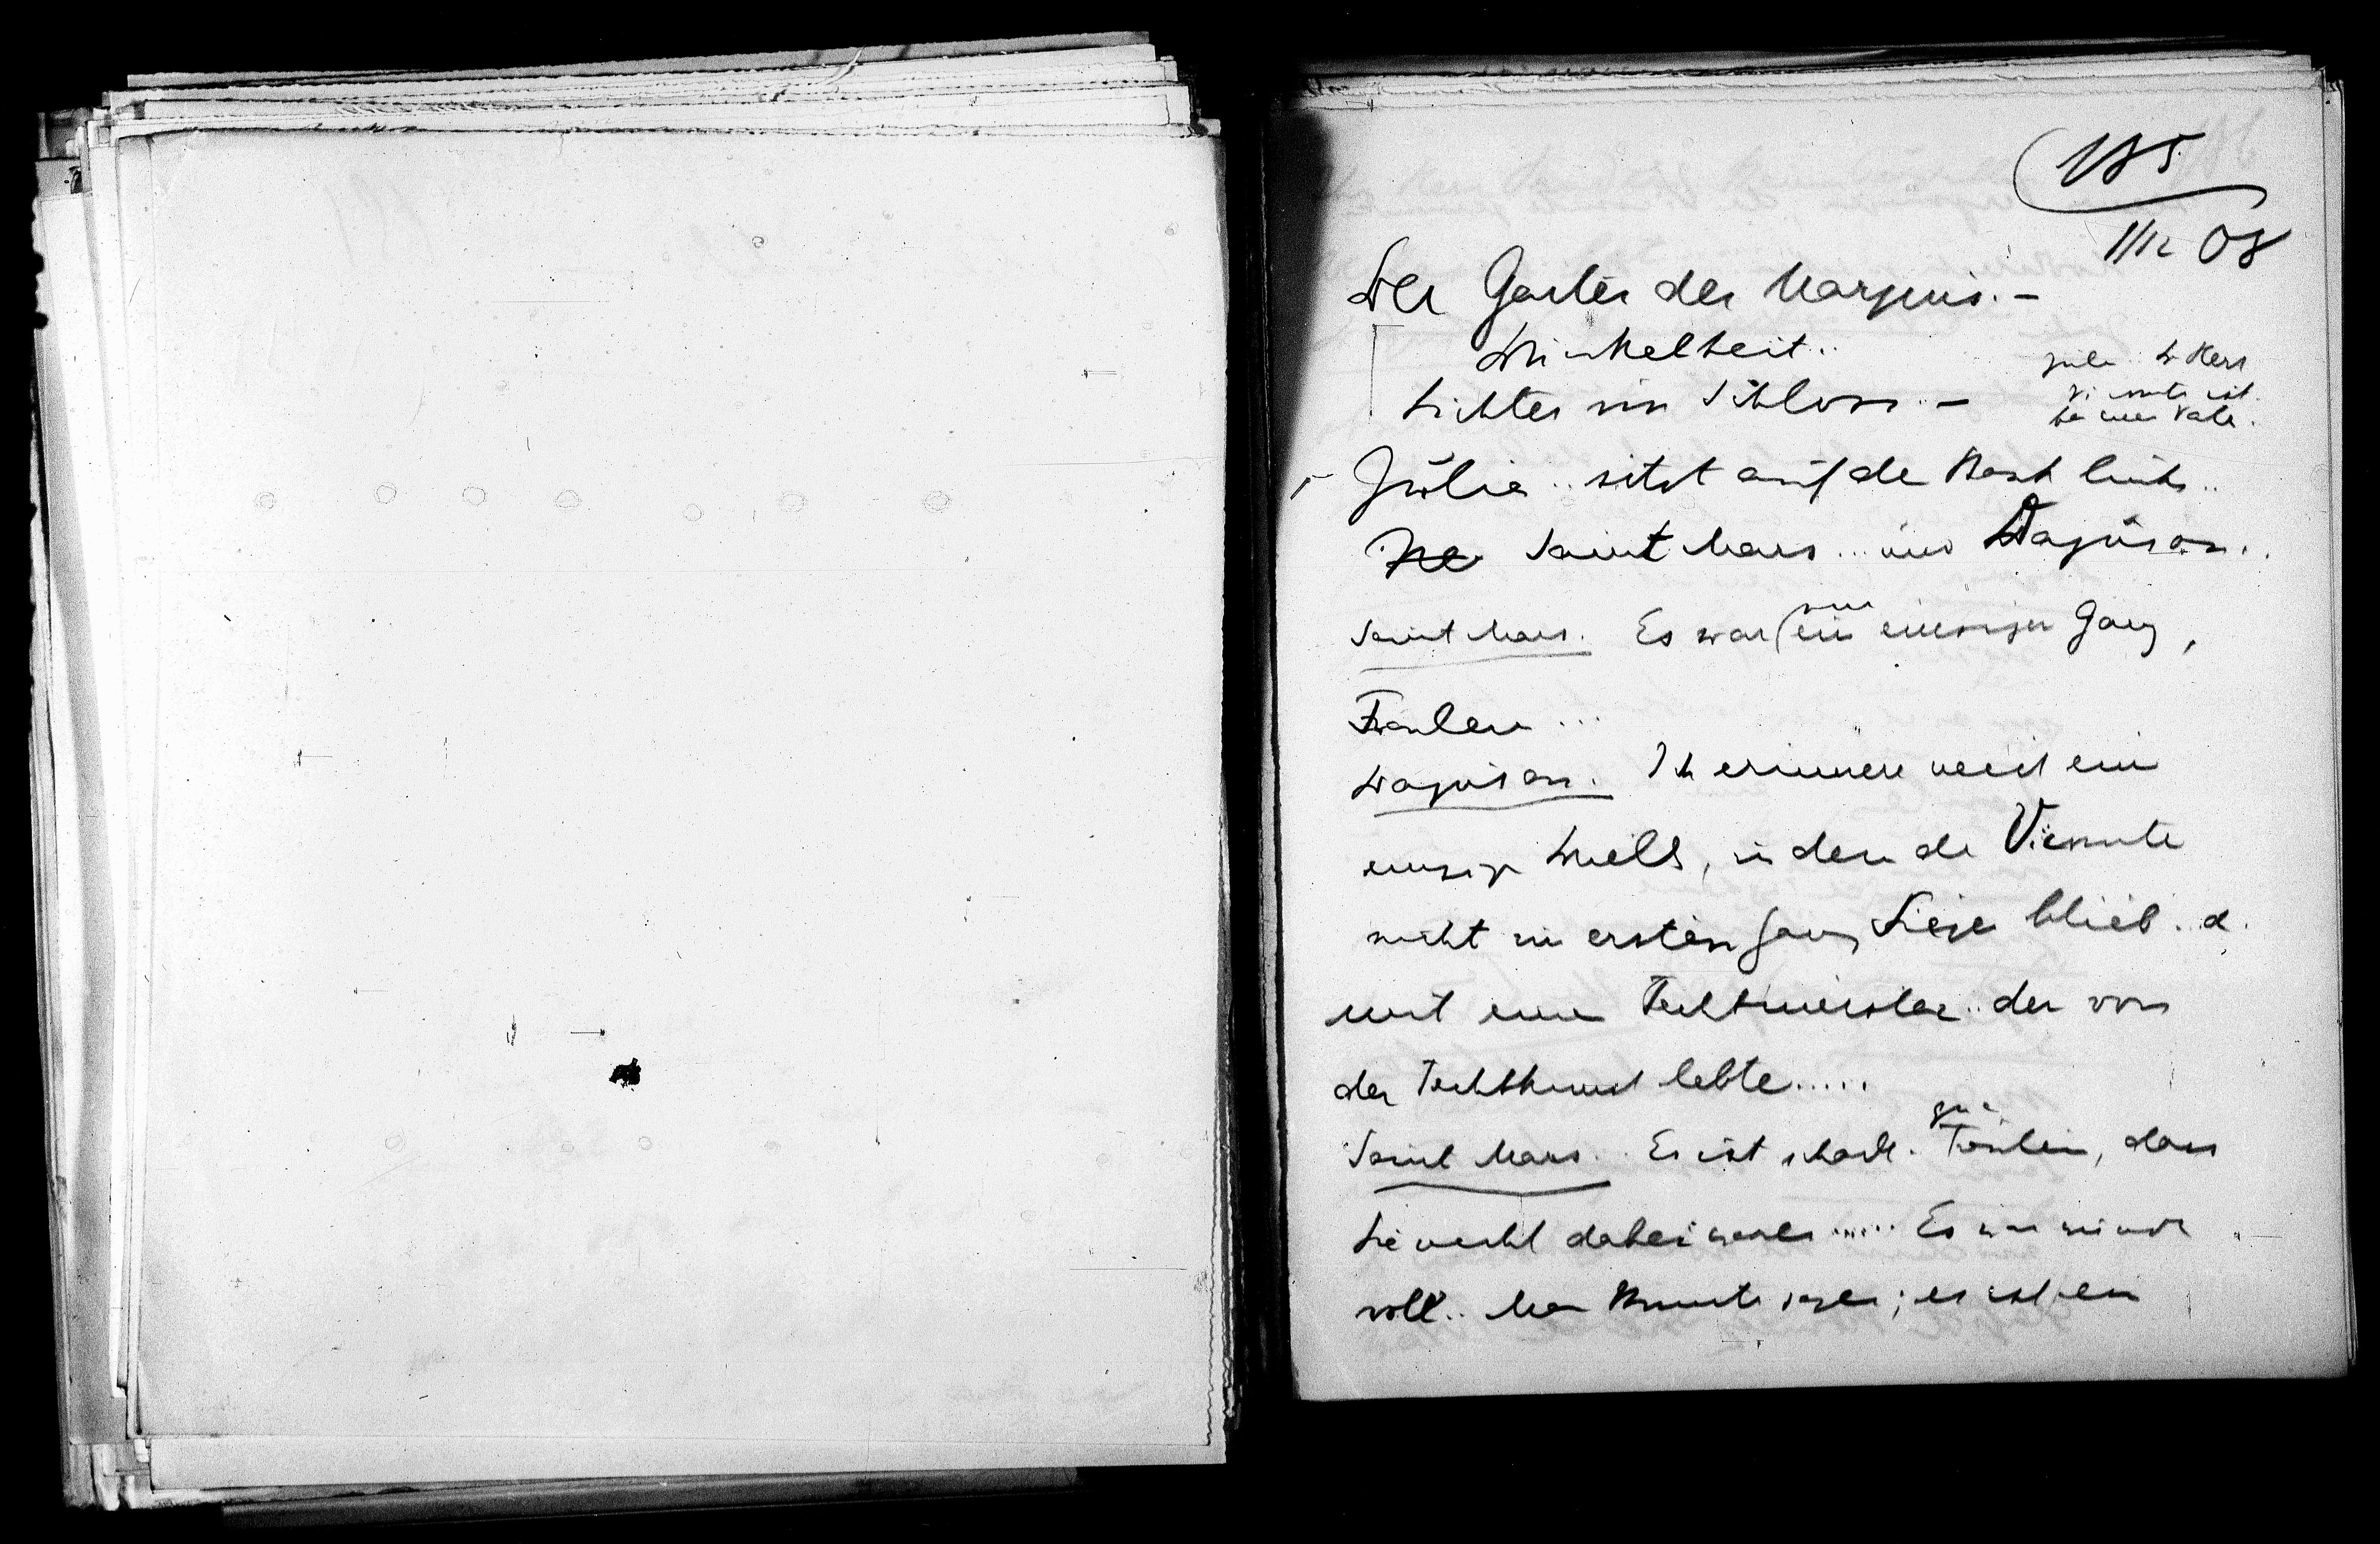 185
1/12 08
Der Garten des Marquis. –
Dunkelheit..
Lichter im Schloss. –
Julie sitzt auf der Bank links..
Saint Mars... und Dagusan..
Saint Mars. Es war nur ein einziger Gang,
Fräulein...
Dagusan. Ich erinnere mich ein
einzig Duells, in dem der Vicomte
nicht im ersten Gang Sieger blieb. d.
mit einem Fechtmeister.. der von
der Fechtkunst lebte.....
Saint Mars. Es ist schade. Fräulein, dass
Sie nicht dabei waren..... Es war wunder
voll.. Man konnte sagen; es ist ein